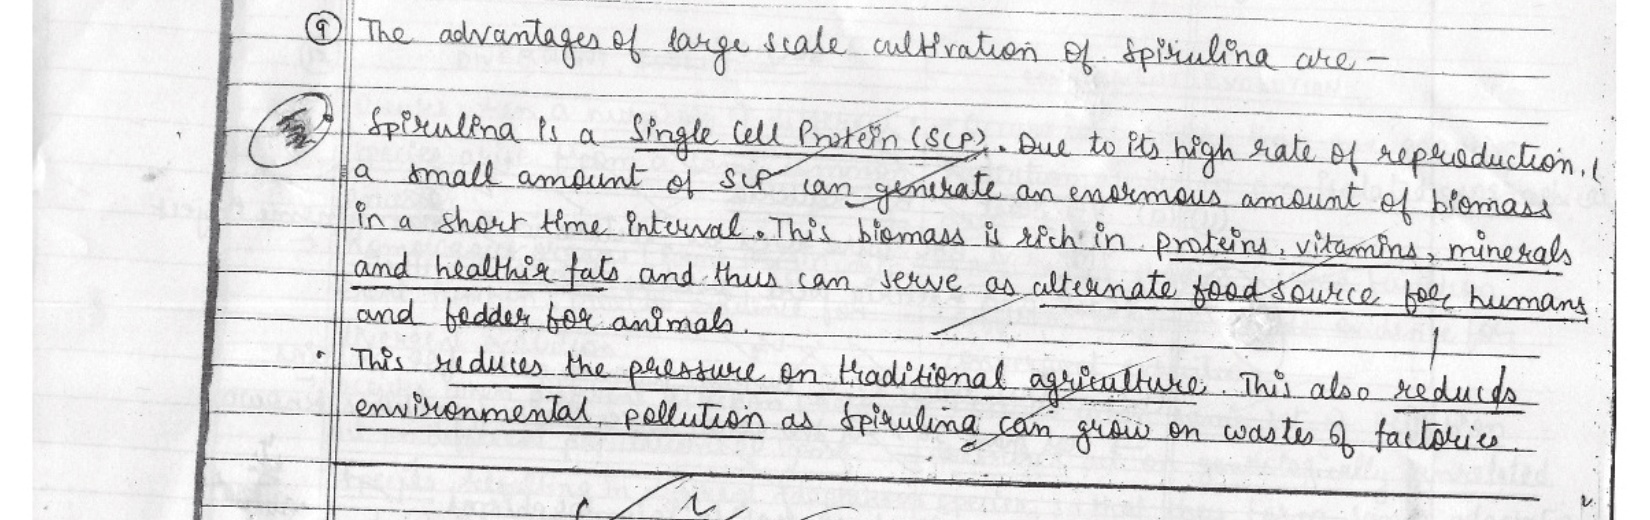 9 The advantages of large scale cultivation of Spirulina are -
Spirulina is a Single Cell Protein (SCP). Due to its high rate of reproduction,
a small amount of SCP can generate an enormous amount of biomass
in a short time interval. This biomass is rich in proteins, vitamins, minerals
and healthir fats and thus can serve as alternate food source for humans
and fodder for animals.
• This reduces the pressure on traditional agriculture. This also reduces
environmental pollution as Spirulina can grow on wastes of factories.